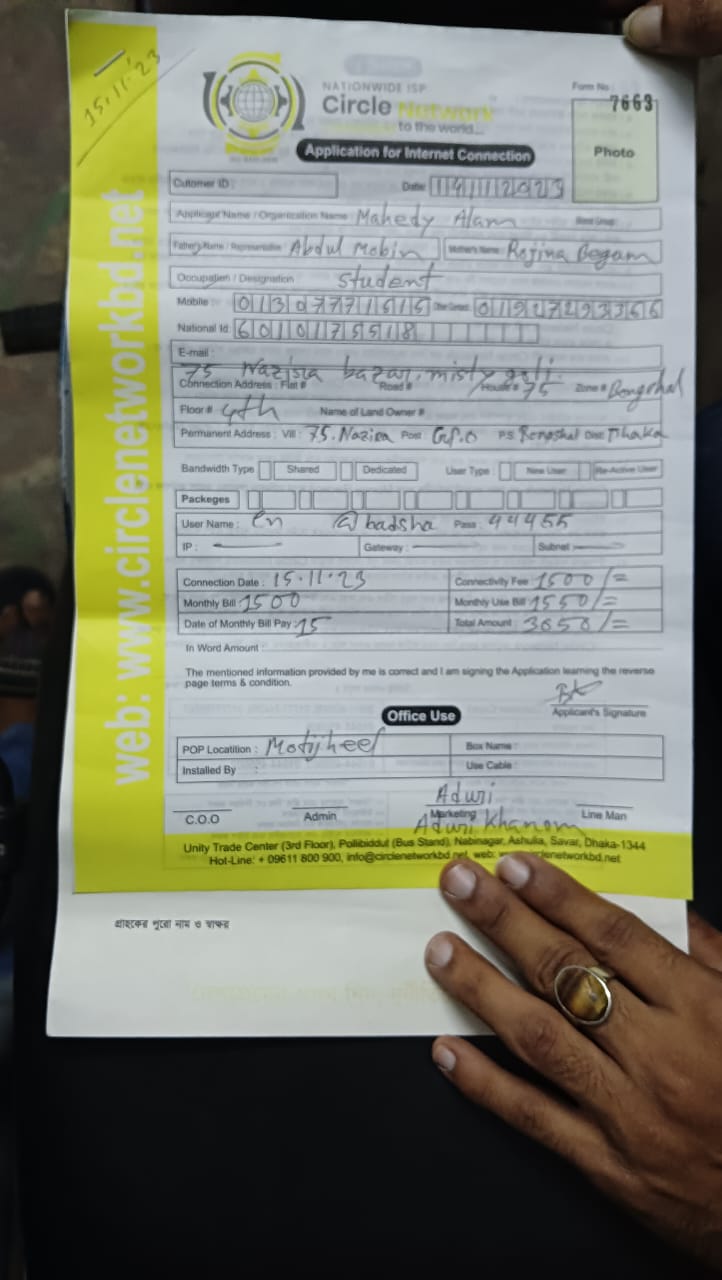 15.11.23
NATIONWIDE ISP
Circle Network
to the world...
Form No :
7663
Photo
Application for Internet Connection
Cutomer ID :
Date: 14112023
Applicant Name / Organization Name : Mahedy Alam Blood Group :
Father's Name / Representative : Abdul Mobin Mother's Name : Rojina Begam
Occupation / Designation : Student
Mobile : 01307771515 Other Contact : 01927293366
National Id: 6010175518
E-mail :
75 Nazira bazar. misty goli.
Connection Address : Flat # Road # House # 75 Zone # Bongshal
Floor # 4th Name of Land Owner #
Permanent Address : Vill : 75. Nazira Post : G.P.O P.S. Bongshal Dist: Dhaka
Bandwidth Type Shared Dedicated User Type : New User Re-Active User
Packeges
User Name : cn @badsha Pass : 44455
IP : Gateway : Subnet
Connection Date : 15.11.23 Connectivity Fee : 1500/=
Monthly Bill : 1500 Monthly Use Bill : 1550/=
Date of Monthly Bill Pay : 15 Total Amount : 3050/=
In Word Amount :
The mentioned information provided by me is correct and I am signing the Application learning the reverse
page terms & condition.
Applicant's Signature
Office Use
POP Locatition : Motijheel Box Name :
Installed By : Use Cable :
Aduri
C.O.O Admin Marketing Line Man
Aduri Khanom
Unity Trade Center (3rd Floor), Pollibiddut (Bus Stand), Nabinagar, Ashulia, Savar, Dhaka-1344
Hot-Line: + 09611 800 900, info@circlenetworkbd.net, web: circlenetworkbd.net
web: www.circlenetworkbd.net
গ্রাহকের পুরো নাম ও স্বাক্ষর